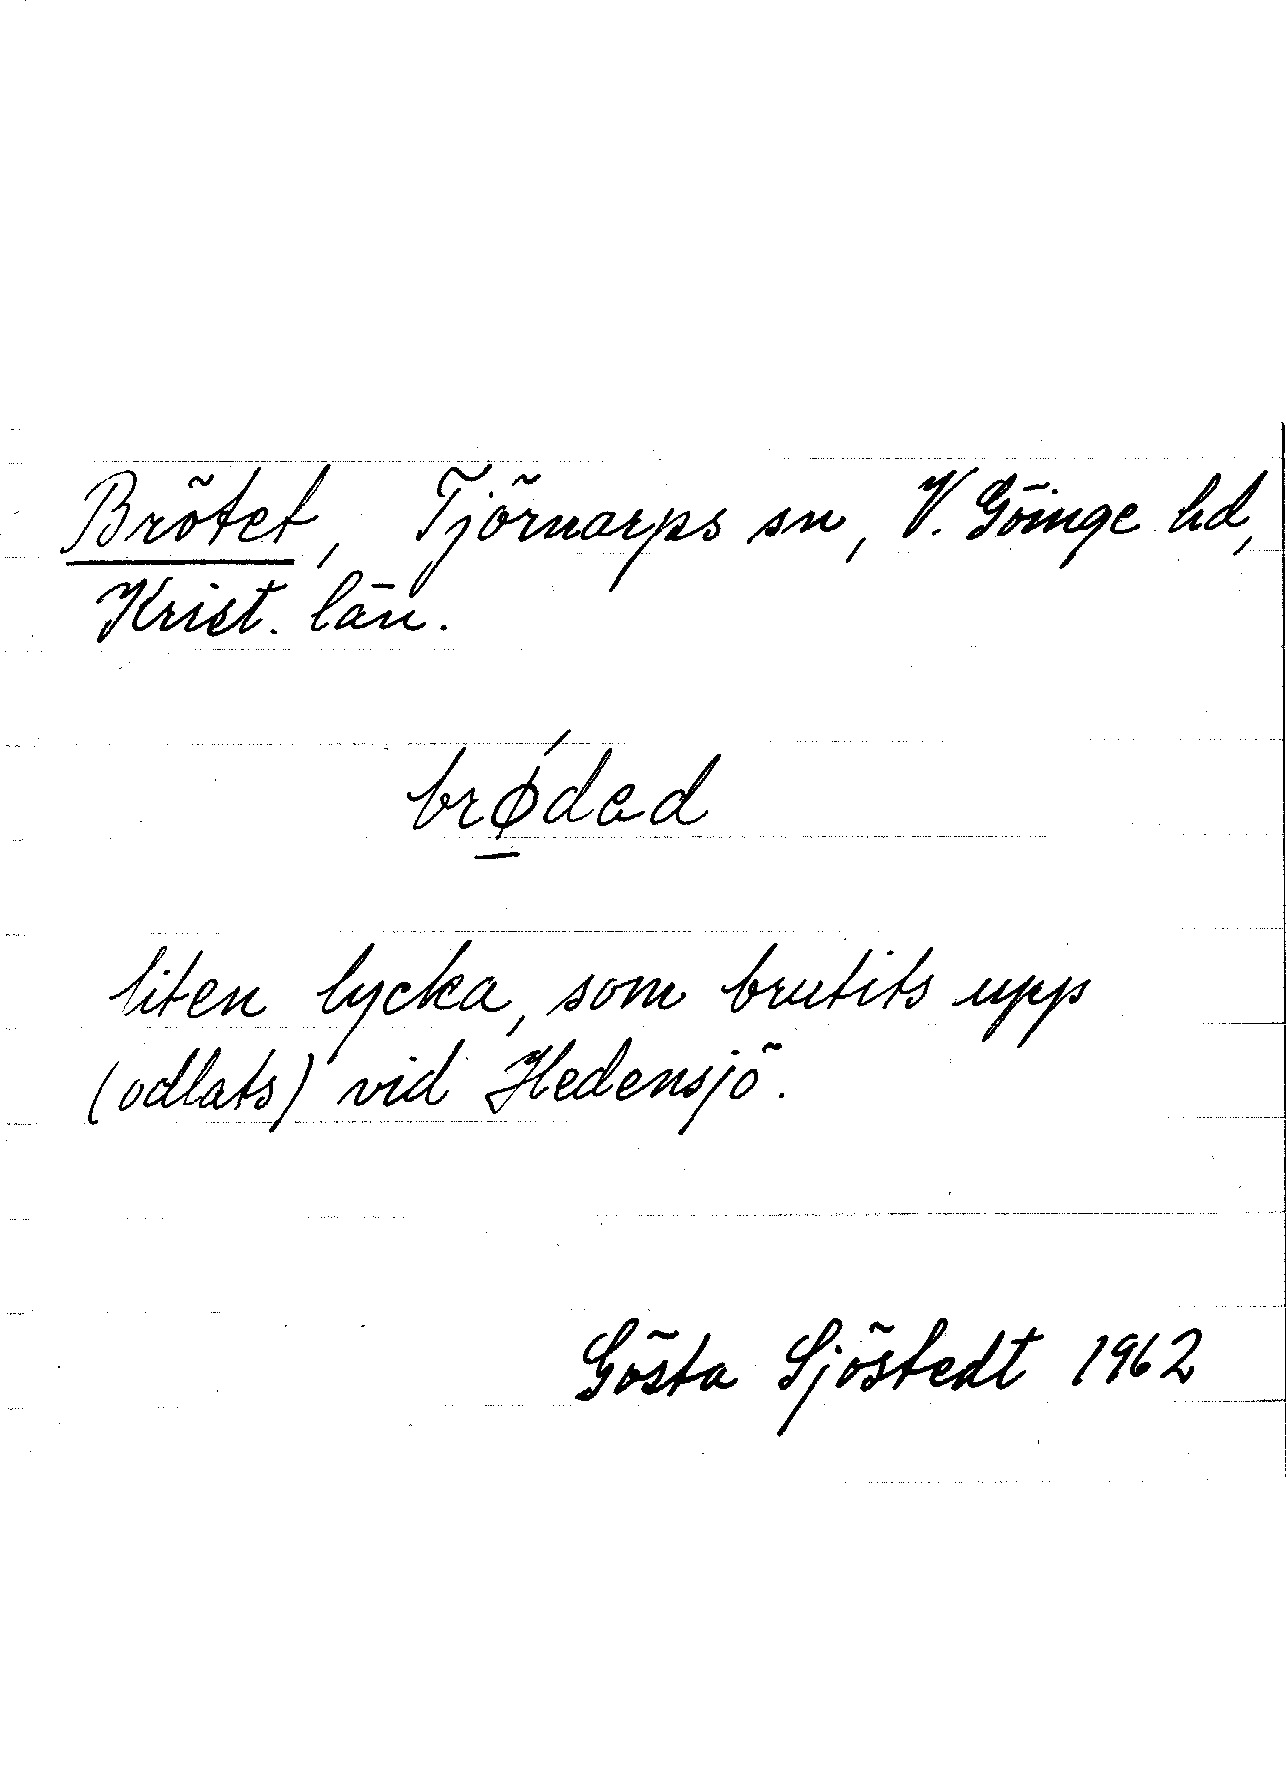 Brötet, Tjörnarps sn, V. Göinge hd,
Krist. län.
brǿ̲dad
liten lycka, som brutits upp
(odlats) vid Hedensjö.
Gösta Sjöstedt 1962